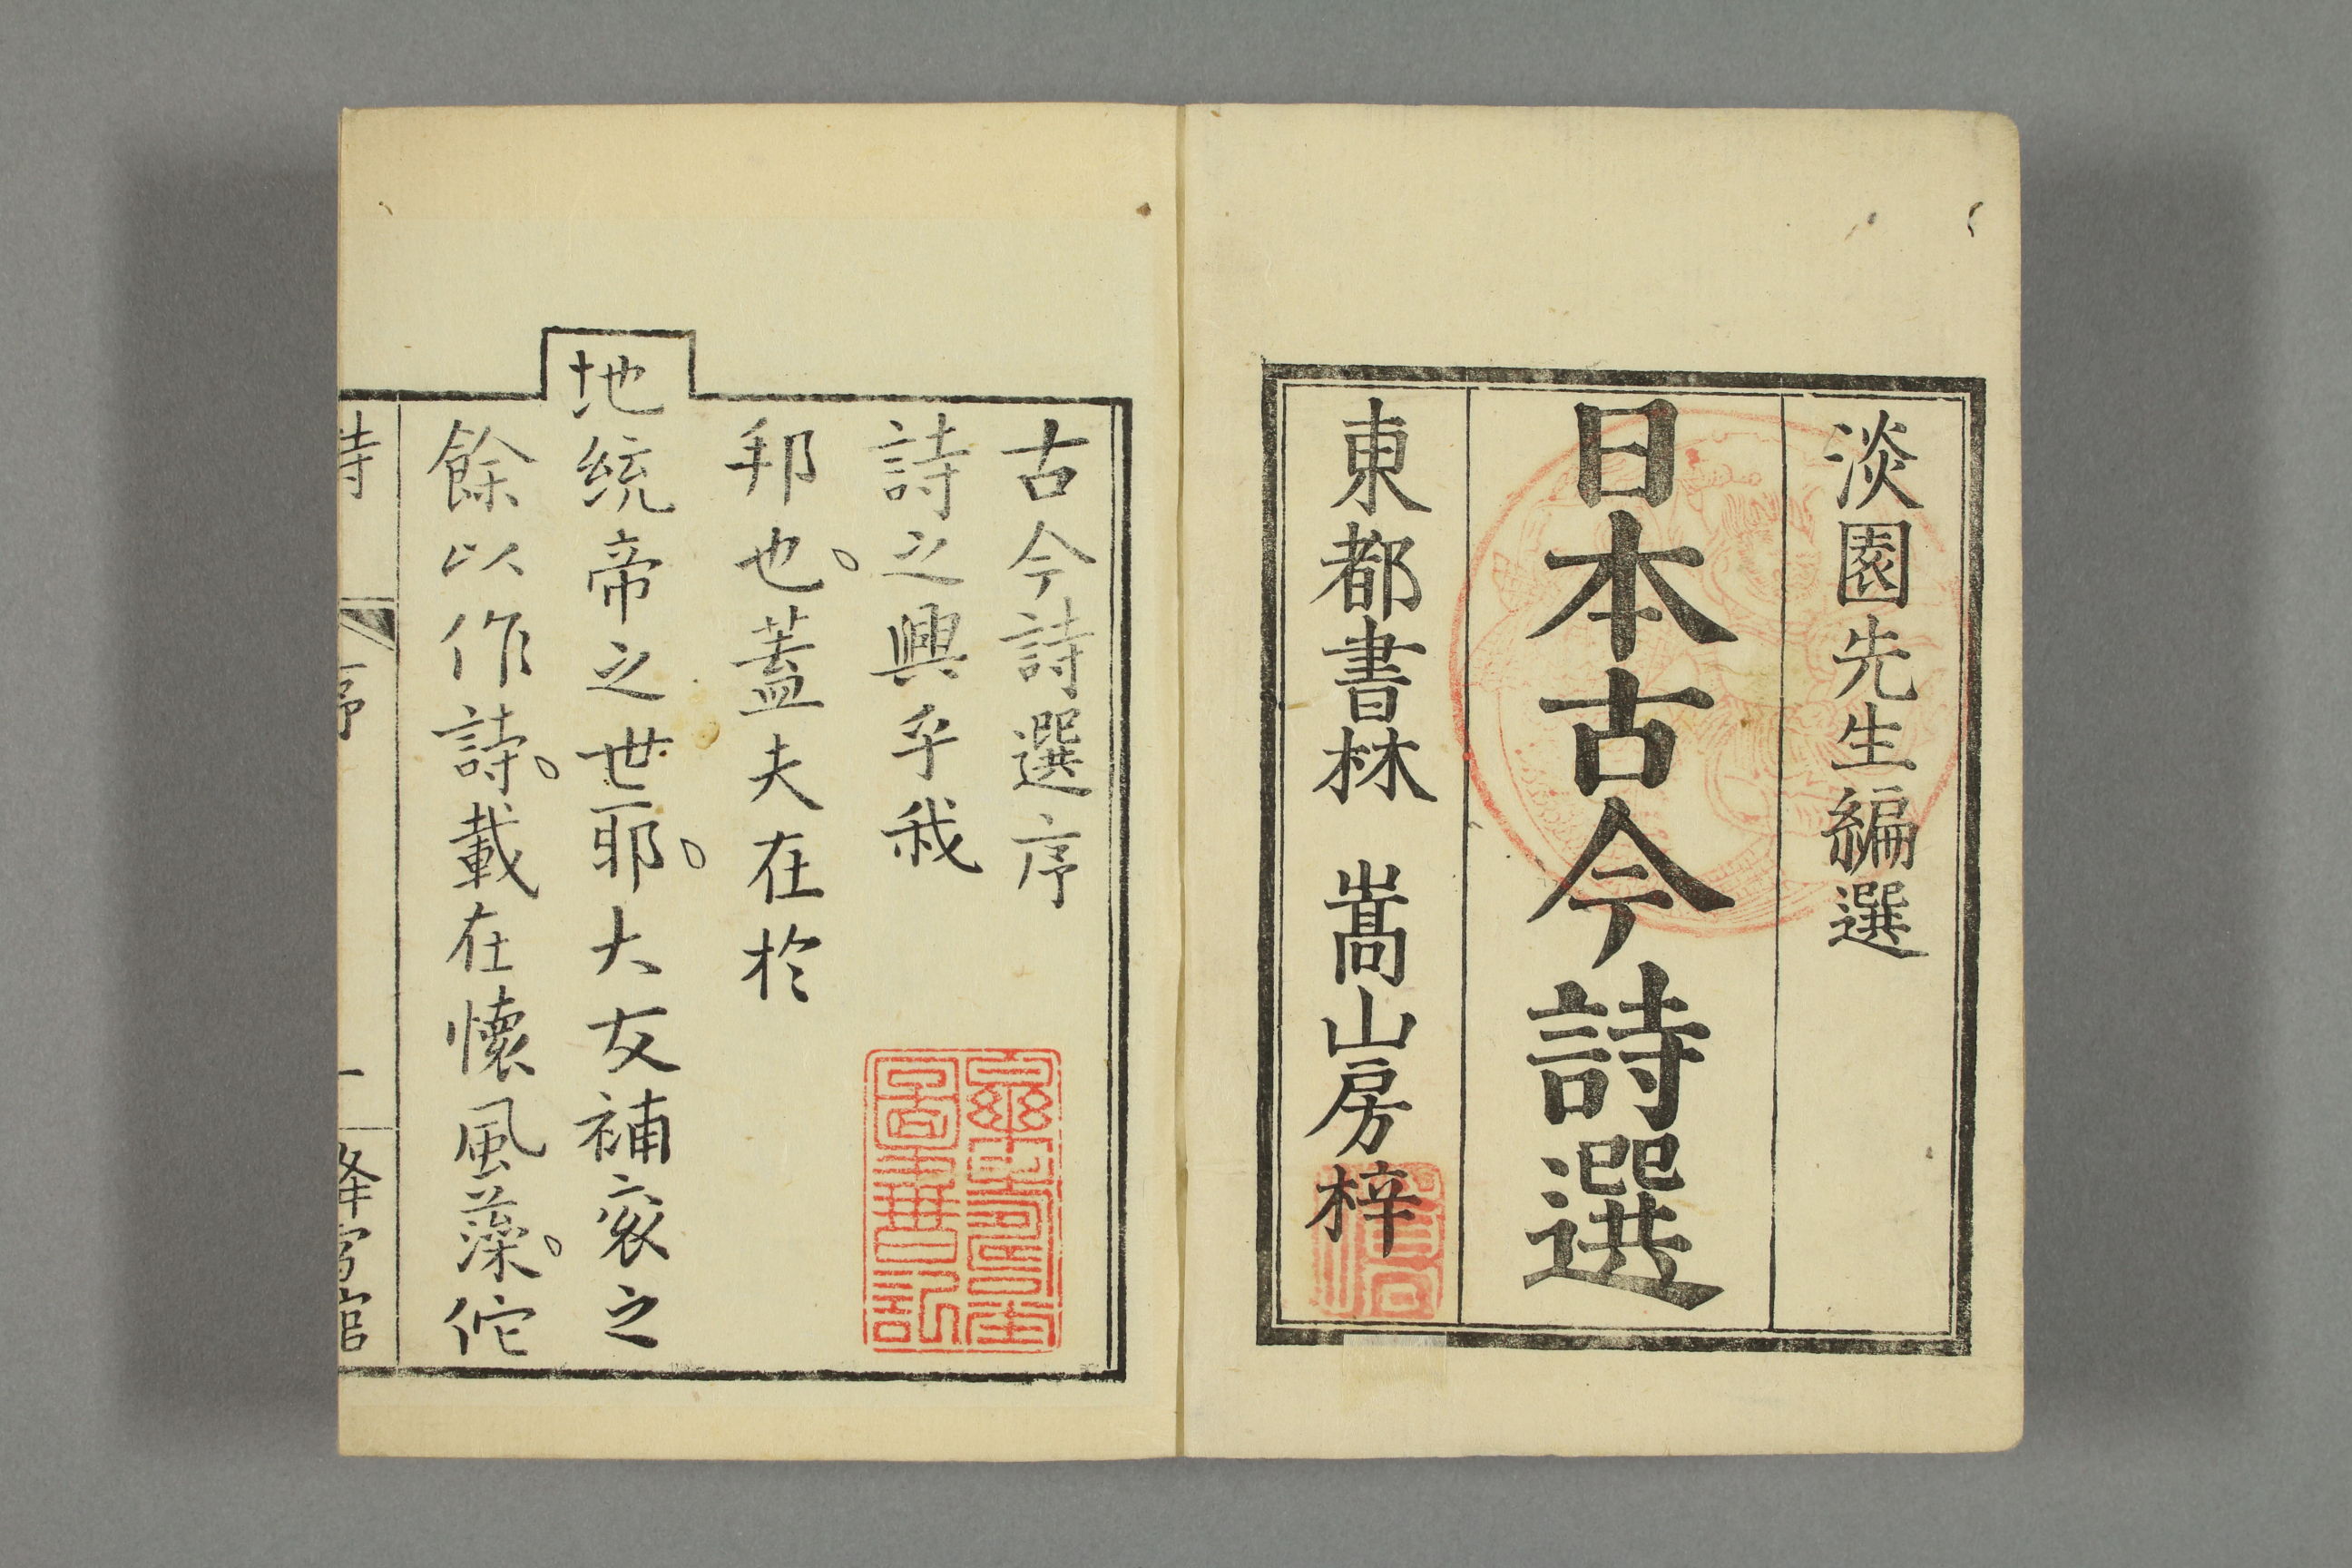 淡園先生編選
日本古今詩選
東都書林　嵩山房梓
古今詩選序
詩之興乎我
邦也。蓋夫在於
地統帝之世耶。大友補袞之
餘以作詩。載在懷風藻。佗
詩
序
一